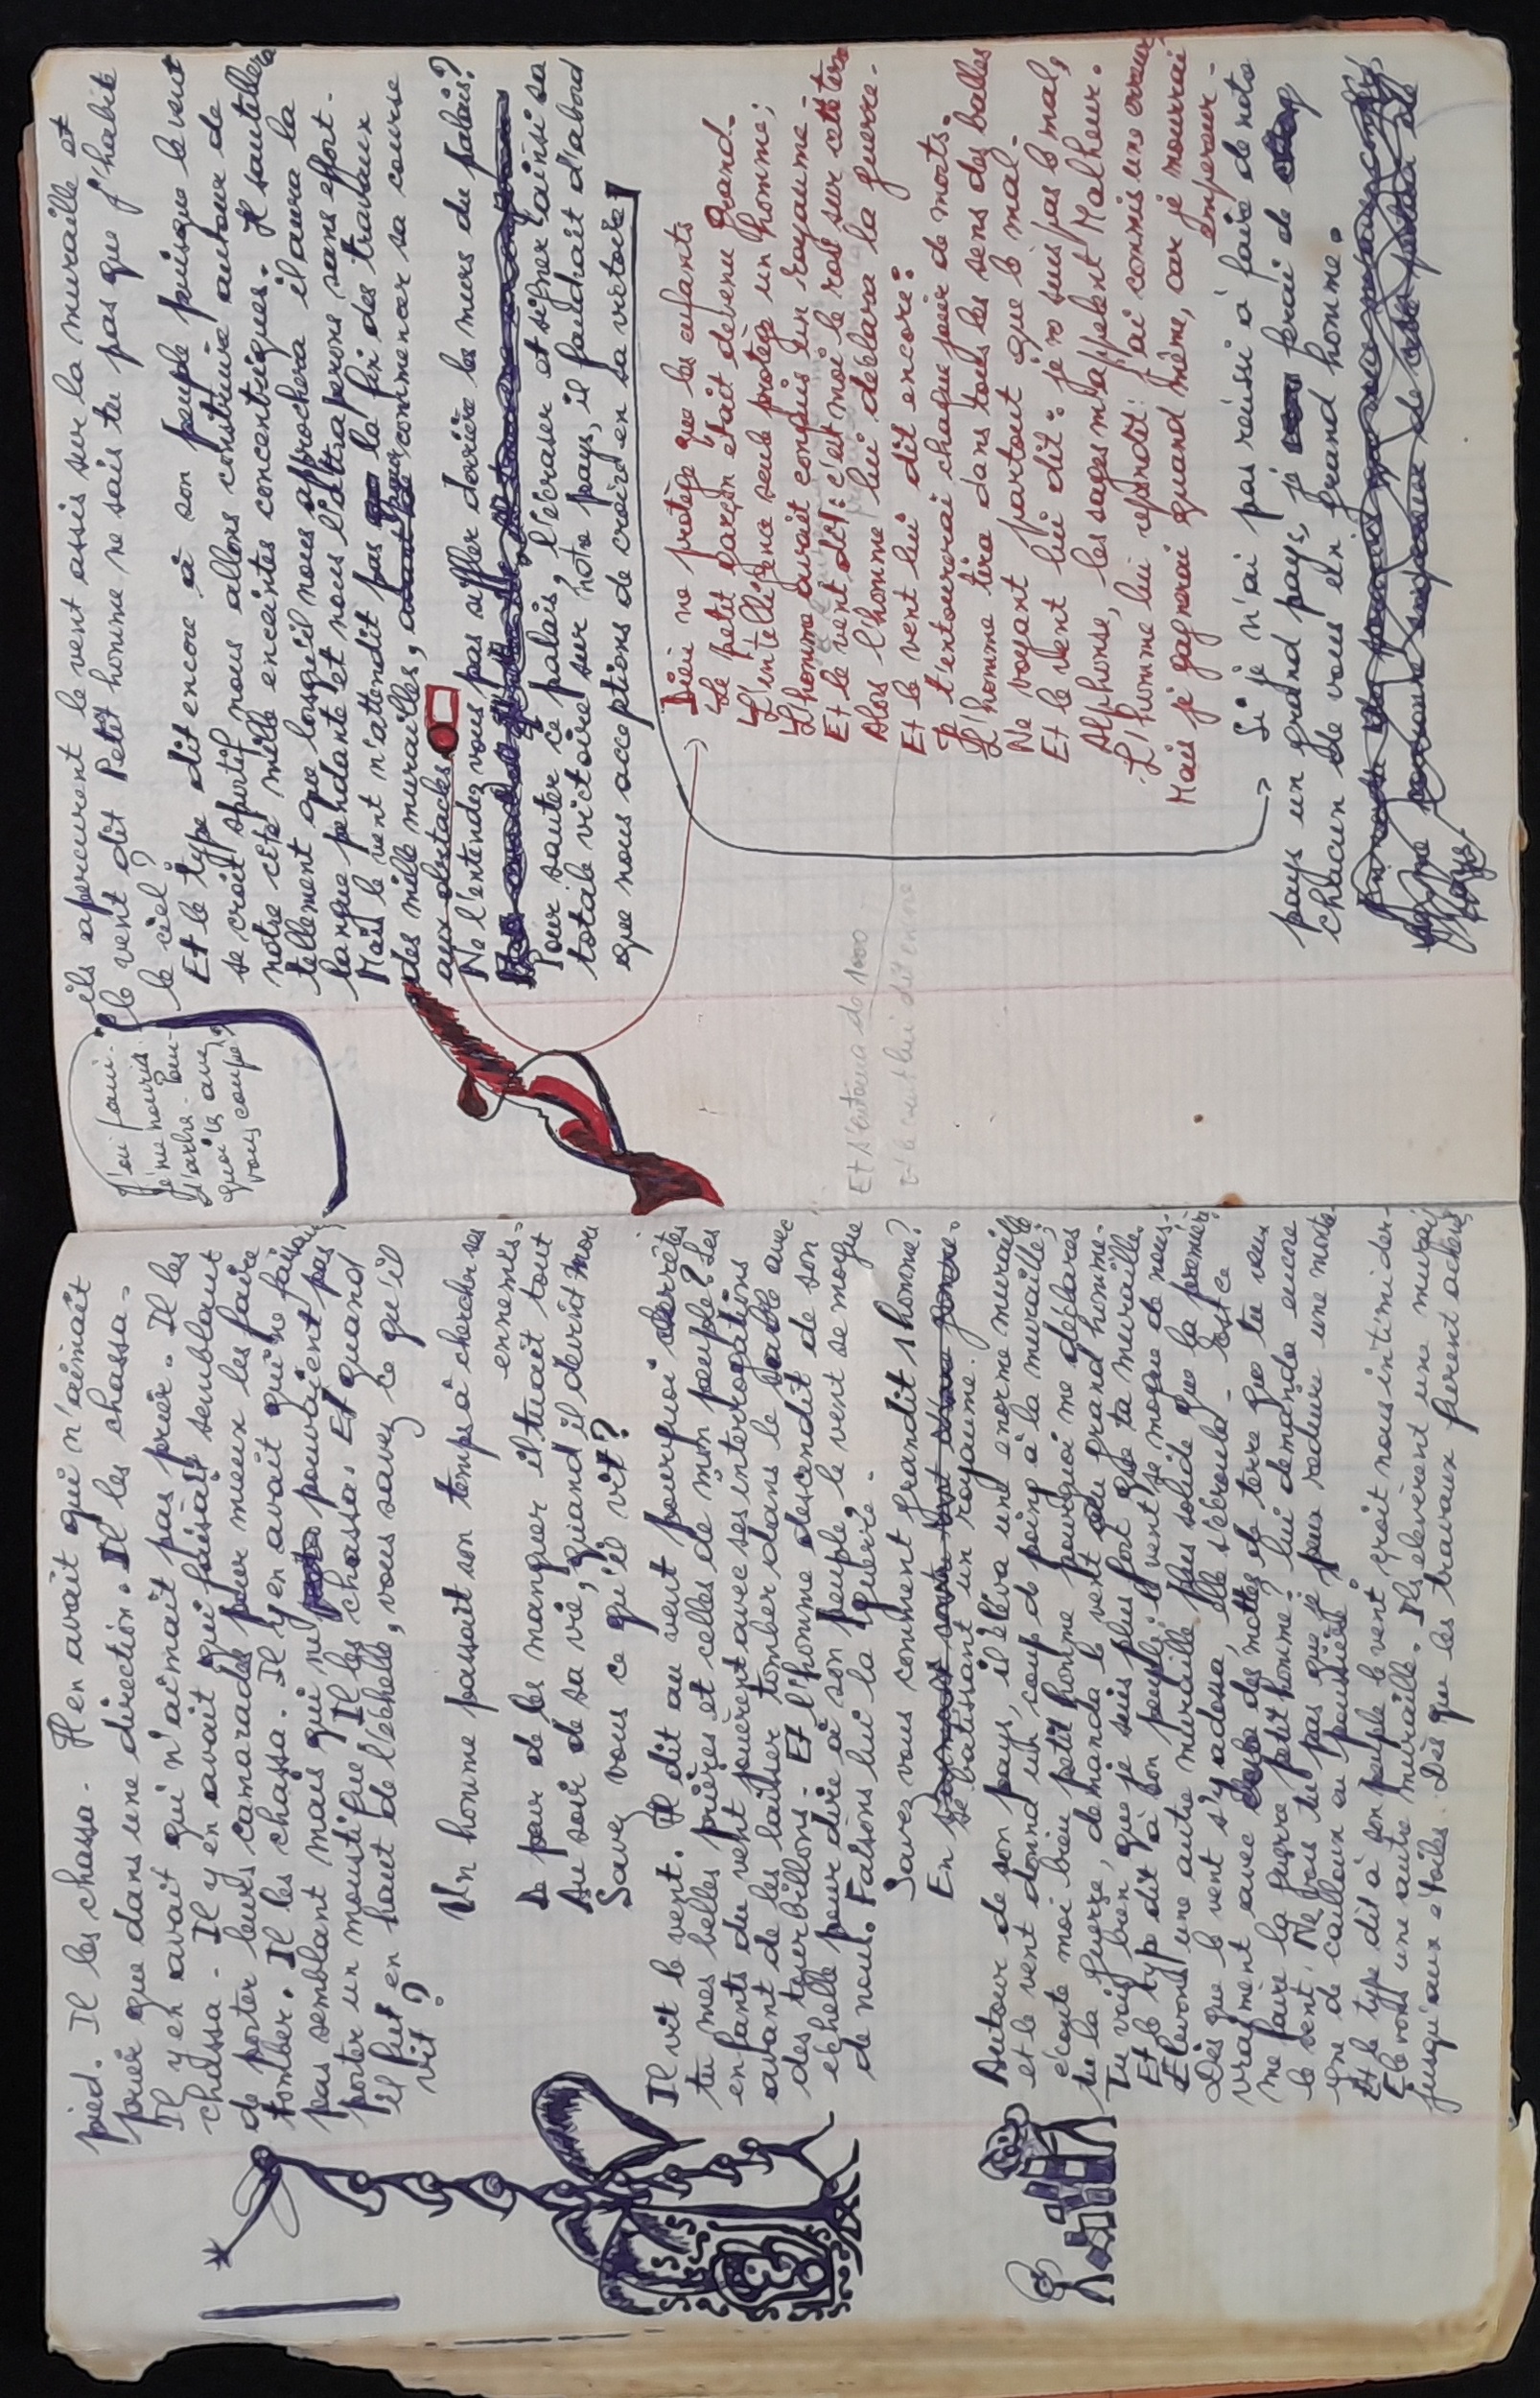 pied. Il les chassa. Il en avait qui n'aimait
prier que dans une direction. Il les chassa.
Il y en avait qui n'aimait pas prier. Il les
chassa. Il y en avait qui faisait semblant
de porter leurs camarades pour mieux les faire
tomber. Il les chassa. Il y en avait qui ne faisait
pas semblant mais qui ne pouvaient pas
porter un moustique. Il les chassa. Et quand
il fut en haut de l'échelle, vous savez ce qu'il
vit ?
Un homme passait son temps à chercher ses
ennemis.
De peur de les manquer il tuait tout
Au soir de sa vie, quand il devint mou
Savez vous ce qu'il vit ?
Il vit le vent. Il dit au vent pourquoi arrêtes
tu mes belles prières et celles de mon peuple ? Les
enfants du vent jouèrent avec ses interrogations
avant de les laisser tomber dans le sable avec
des tourbillons. Et l'homme descendit de son
échelle pour dire à son peuple, le vent se moque
de nous. Faisons lui la guerre.
Savez vous comment grandit l'homme ?
En
se batissant un royaume.
Autour de son pays, il éleva une énorme muraille
et le vent donna un coup de poing à la muraille ;
écoute moi bien petit homme pourquoi me déclares
tu la guerre, demanda le vent au grand homme.
Tu vois bien que je suis plus fort que ta muraille.
Et le type dit à son peuple : le vent se moque de nous.
Elevons une autre muraille plus solide que la première.
Dès que le vent s'y adossa, elle s'écroula. Est ce
vraiment avec des mottes de terre que tu veux
me faire la guerre petit homme ? lui demanda encore
le vent. Ne vois tu pas que je peux reduire une monta-
gne de cailloux en poussière ?
Et le type dit à son peuple le vent croit nous intimider.
Elevons une autre muraille. Ils elevèrent une muraille
jusqu'aux étoiles. Dès que les travaux furent achevés
ils apercurent le vent assis sur la muraille et
le vent dit Petit homme ne sais tu pas que j'habite
le ciel ?
J'ai faim.
Je me nourris
d'arbre. Pour-
quoi les avez
vous coupé ?
Et le type dit encore à son peuple puisque le vent
se croit sportif nous allons construire autour de
notre cité mille enceintes concentriques. Il sautera
tellement que lorsqu'il nous approchera il aura la
langue pendante et nous l'attraperons sans effort.
Mais le vent n'attendit pas la fin des travaux
des mille murailles, pour commencer sa course
aux obstacles.
Ne l'entendez vous pas siffler derrière les murs du palais ?
Pour sauter ce palais, l'écraser et signer ainsi sa
totale victoire sur notre pays, il faudrait d'abord
que nous acceptions de croire en sa victoire
Dieu ne protège que les enfants
Le petit garçon était devenu grand.
L'intelligence seule protège un homme ;
L'homme avait conquis un royaume.
Et le vent dit : c'est moi le roi sur cette terre
Alors l'homme lui déclara la guerre.
Et le vent lui dit encore :
Je t'entourerai chaque jour de morts.
L'homme tira dans tous les sens des balles
Ne voyant partout que le mal.
Et le vent lui dit : je ne suis pas le mal,
Alphonse, les sages m'appellent Malheur.
L'homme lui repondit : j'ai commis une erreur
Mais je gagnerai quand même, car je mourrai
empereur.
Et l'entoura de 1000
Et le vent lui dit encore
Si je n'ai pas réussi à faire de notre
pays un grand pays, je ferai de
chacun de vous un grand homme.